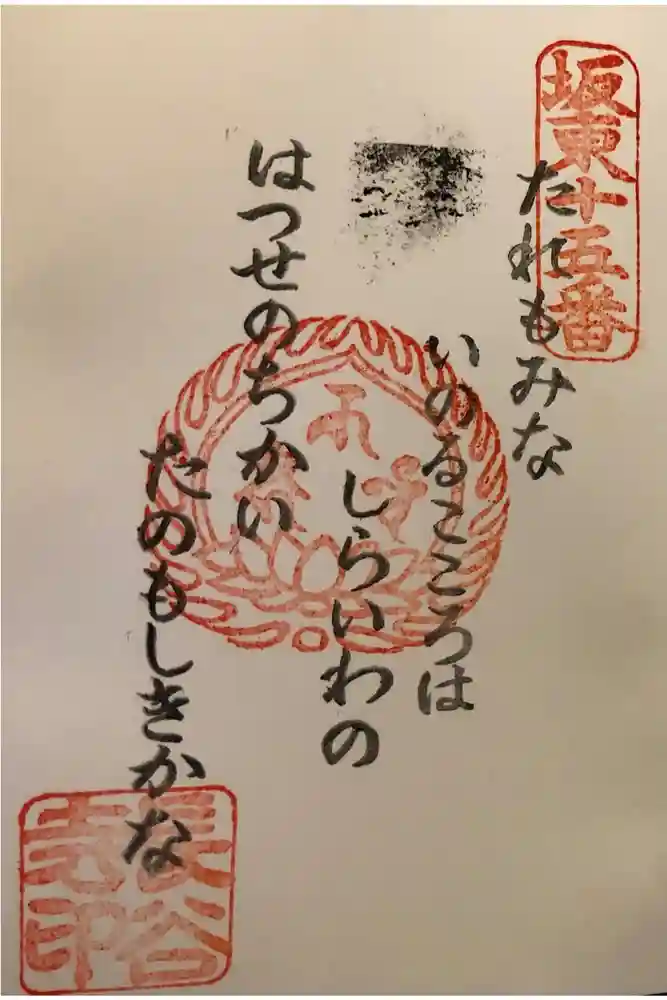 坂東十五番
たれもみな
いのるこころは
しらいわの
はつせのちかい
たのもしきかな
長谷寺印